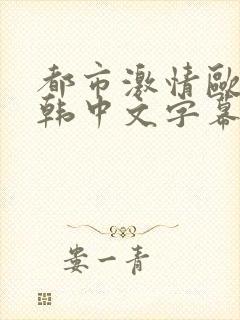 都市激情歐
韩中文字幕
娄一青